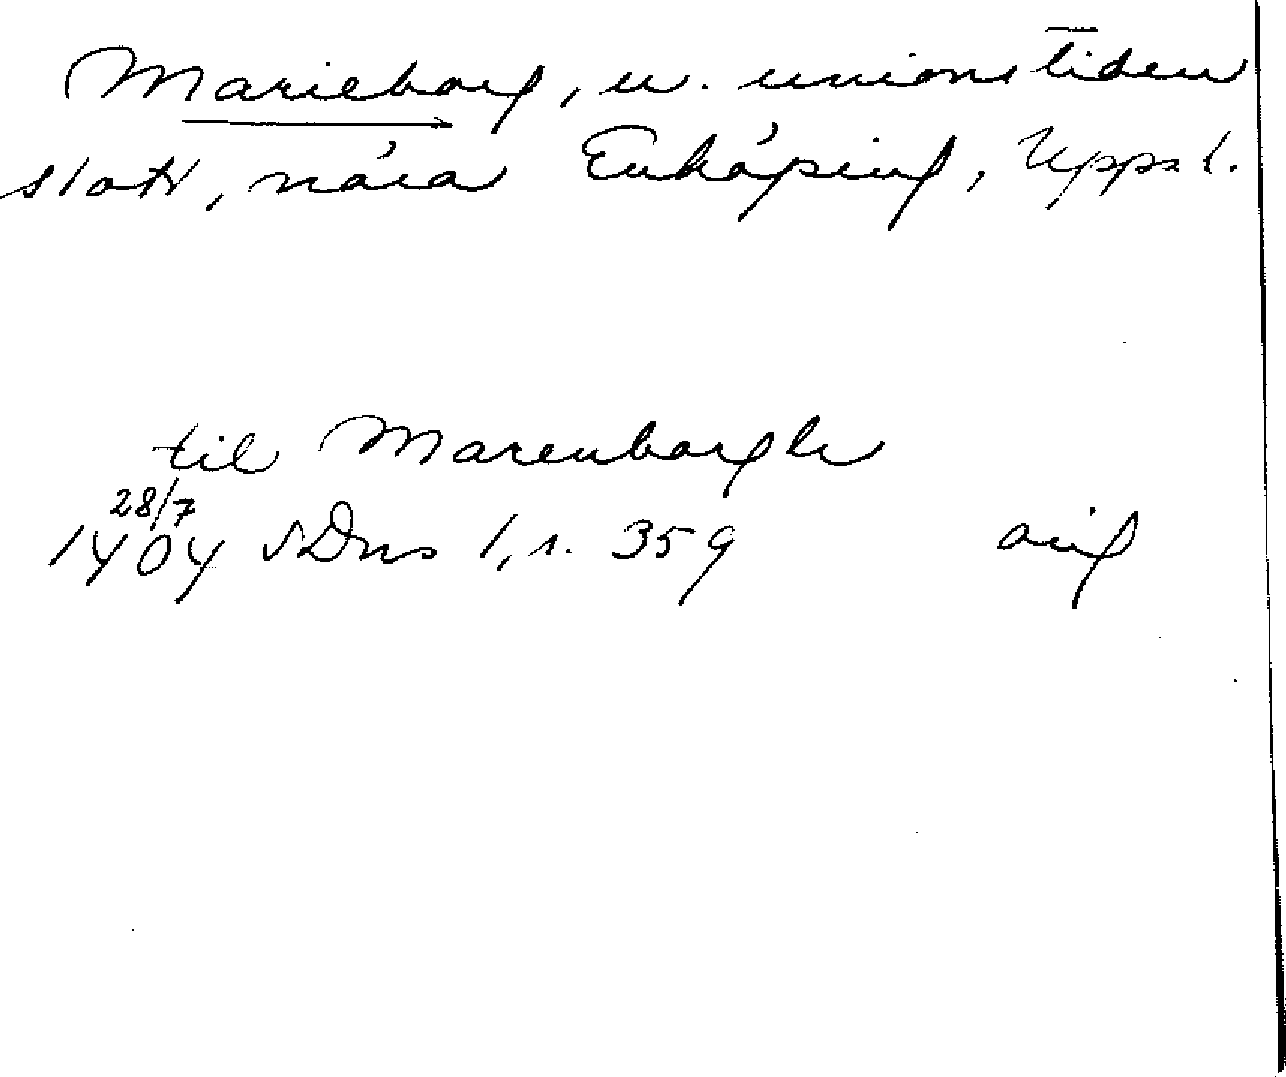 Marieborg, u. unionstiden
slott, nära Enköping, Upps l.
til Marenborgh
28/7
1404 SDns 1, s. 359 orig